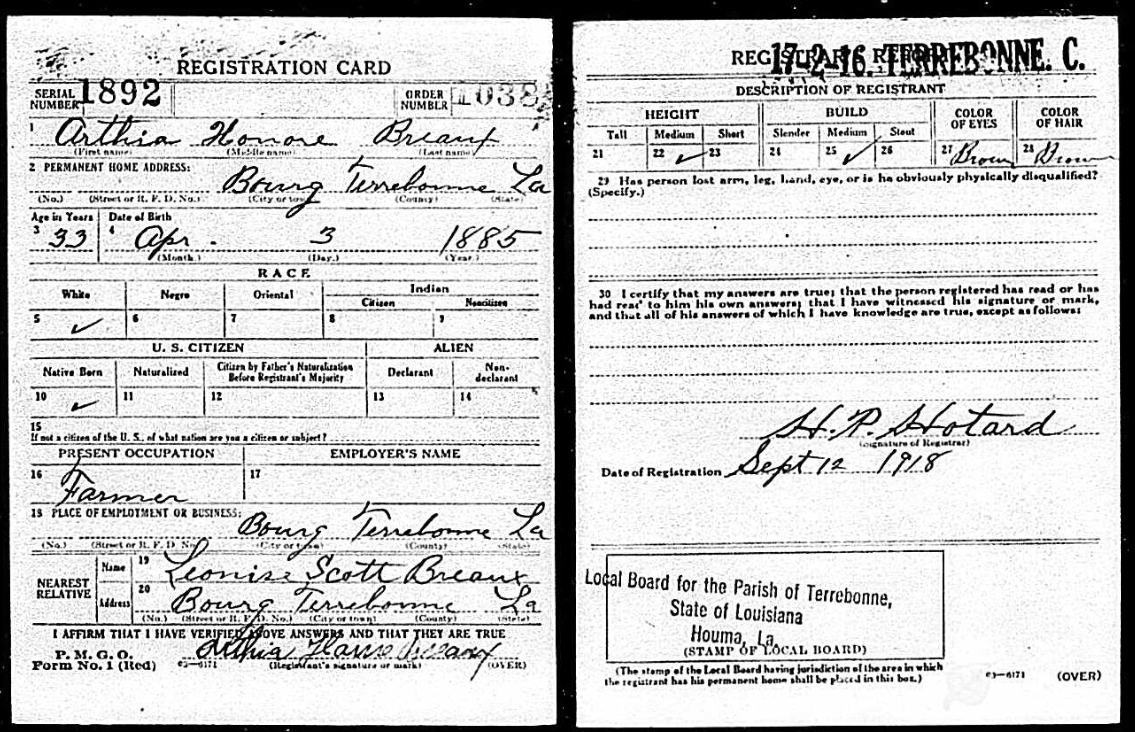 REGISTRATION CARD
SERIAL NUMBER 1892
ORDER NUMBER 1038
1 Arthia Honore Breaux
(First name) (Middle name) (Last name)
2 PERMANENT HOME ADDRESS:
Bourg Terrebonne La
(No.) (Street or R. F. D. No.) (City or town) (County) (State)
Age in Years Date of Birth
3 33 4 Apr. 3 1885
(Month.) (Day.) (Year.)
RACE
White Negro Oriental Indian
Citizen Noncitizen
5 ✓ 6 7 8 9
U. S. CITIZEN ALIEN
Native Born Naturalized Citizen by Father's Naturalization Before Registrant's Majority Declarant Non-declarant
10 ✓ 11 12 13 14
15
If not a citizen of the U. S., of what nation are you a citizen or subject?
PRESENT OCCUPATION EMPLOYER'S NAME
16 Farmer 17
18 PLACE OF EMPLOYMENT OR BUSINESS:
Bourg Terrebonne La
(No.) (Street or R. F. D. No.) (City or town) (County) (State)
NEAREST RELATIVE
Name 19 Leonise Scott Breaux
Address 20 Bourg Terrebonne La
(No.) (Street or R. F. D. No.) (City or town) (County) (State)
I AFFIRM THAT I HAVE VERIFIED ABOVE ANSWERS AND THAT THEY ARE TRUE
P. M. G. O.
Form No. 1 (Red) 03—6171 Arthia Breaux
(Registrant's signature or mark) (OVER)
17-2-16. TERREBONNE. C.
DESCRIPTION OF REGISTRANT
HEIGHT BUILD COLOR OF EYES COLOR OF HAIR
Tall Medium Short Slender Medium Stout
21 22 ✓ 23 24 25 ✓ 26 27 Brown 28 Brown
29 Has person lost arm, leg, hand, eye, or is he obviously physically disqualified?
(Specify.)
30 I certify that my answers are true; that the person registered has read or has
had read to him his own answers; that I have witnessed his signature or mark,
and that all of his answers of which I have knowledge are true, except as follows:
H. P. Hotard
(Signature of Registrar)
Date of Registration Sept 12 1918
Local Board for the Parish of Terrebonne,
State of Louisiana
Houma, La.
(STAMP OF LOCAL BOARD)
(The stamp of the Local Board having jurisdiction of the area in which
the registrant has his permanent home shall be placed in this box.)
03—6171 (OVER)